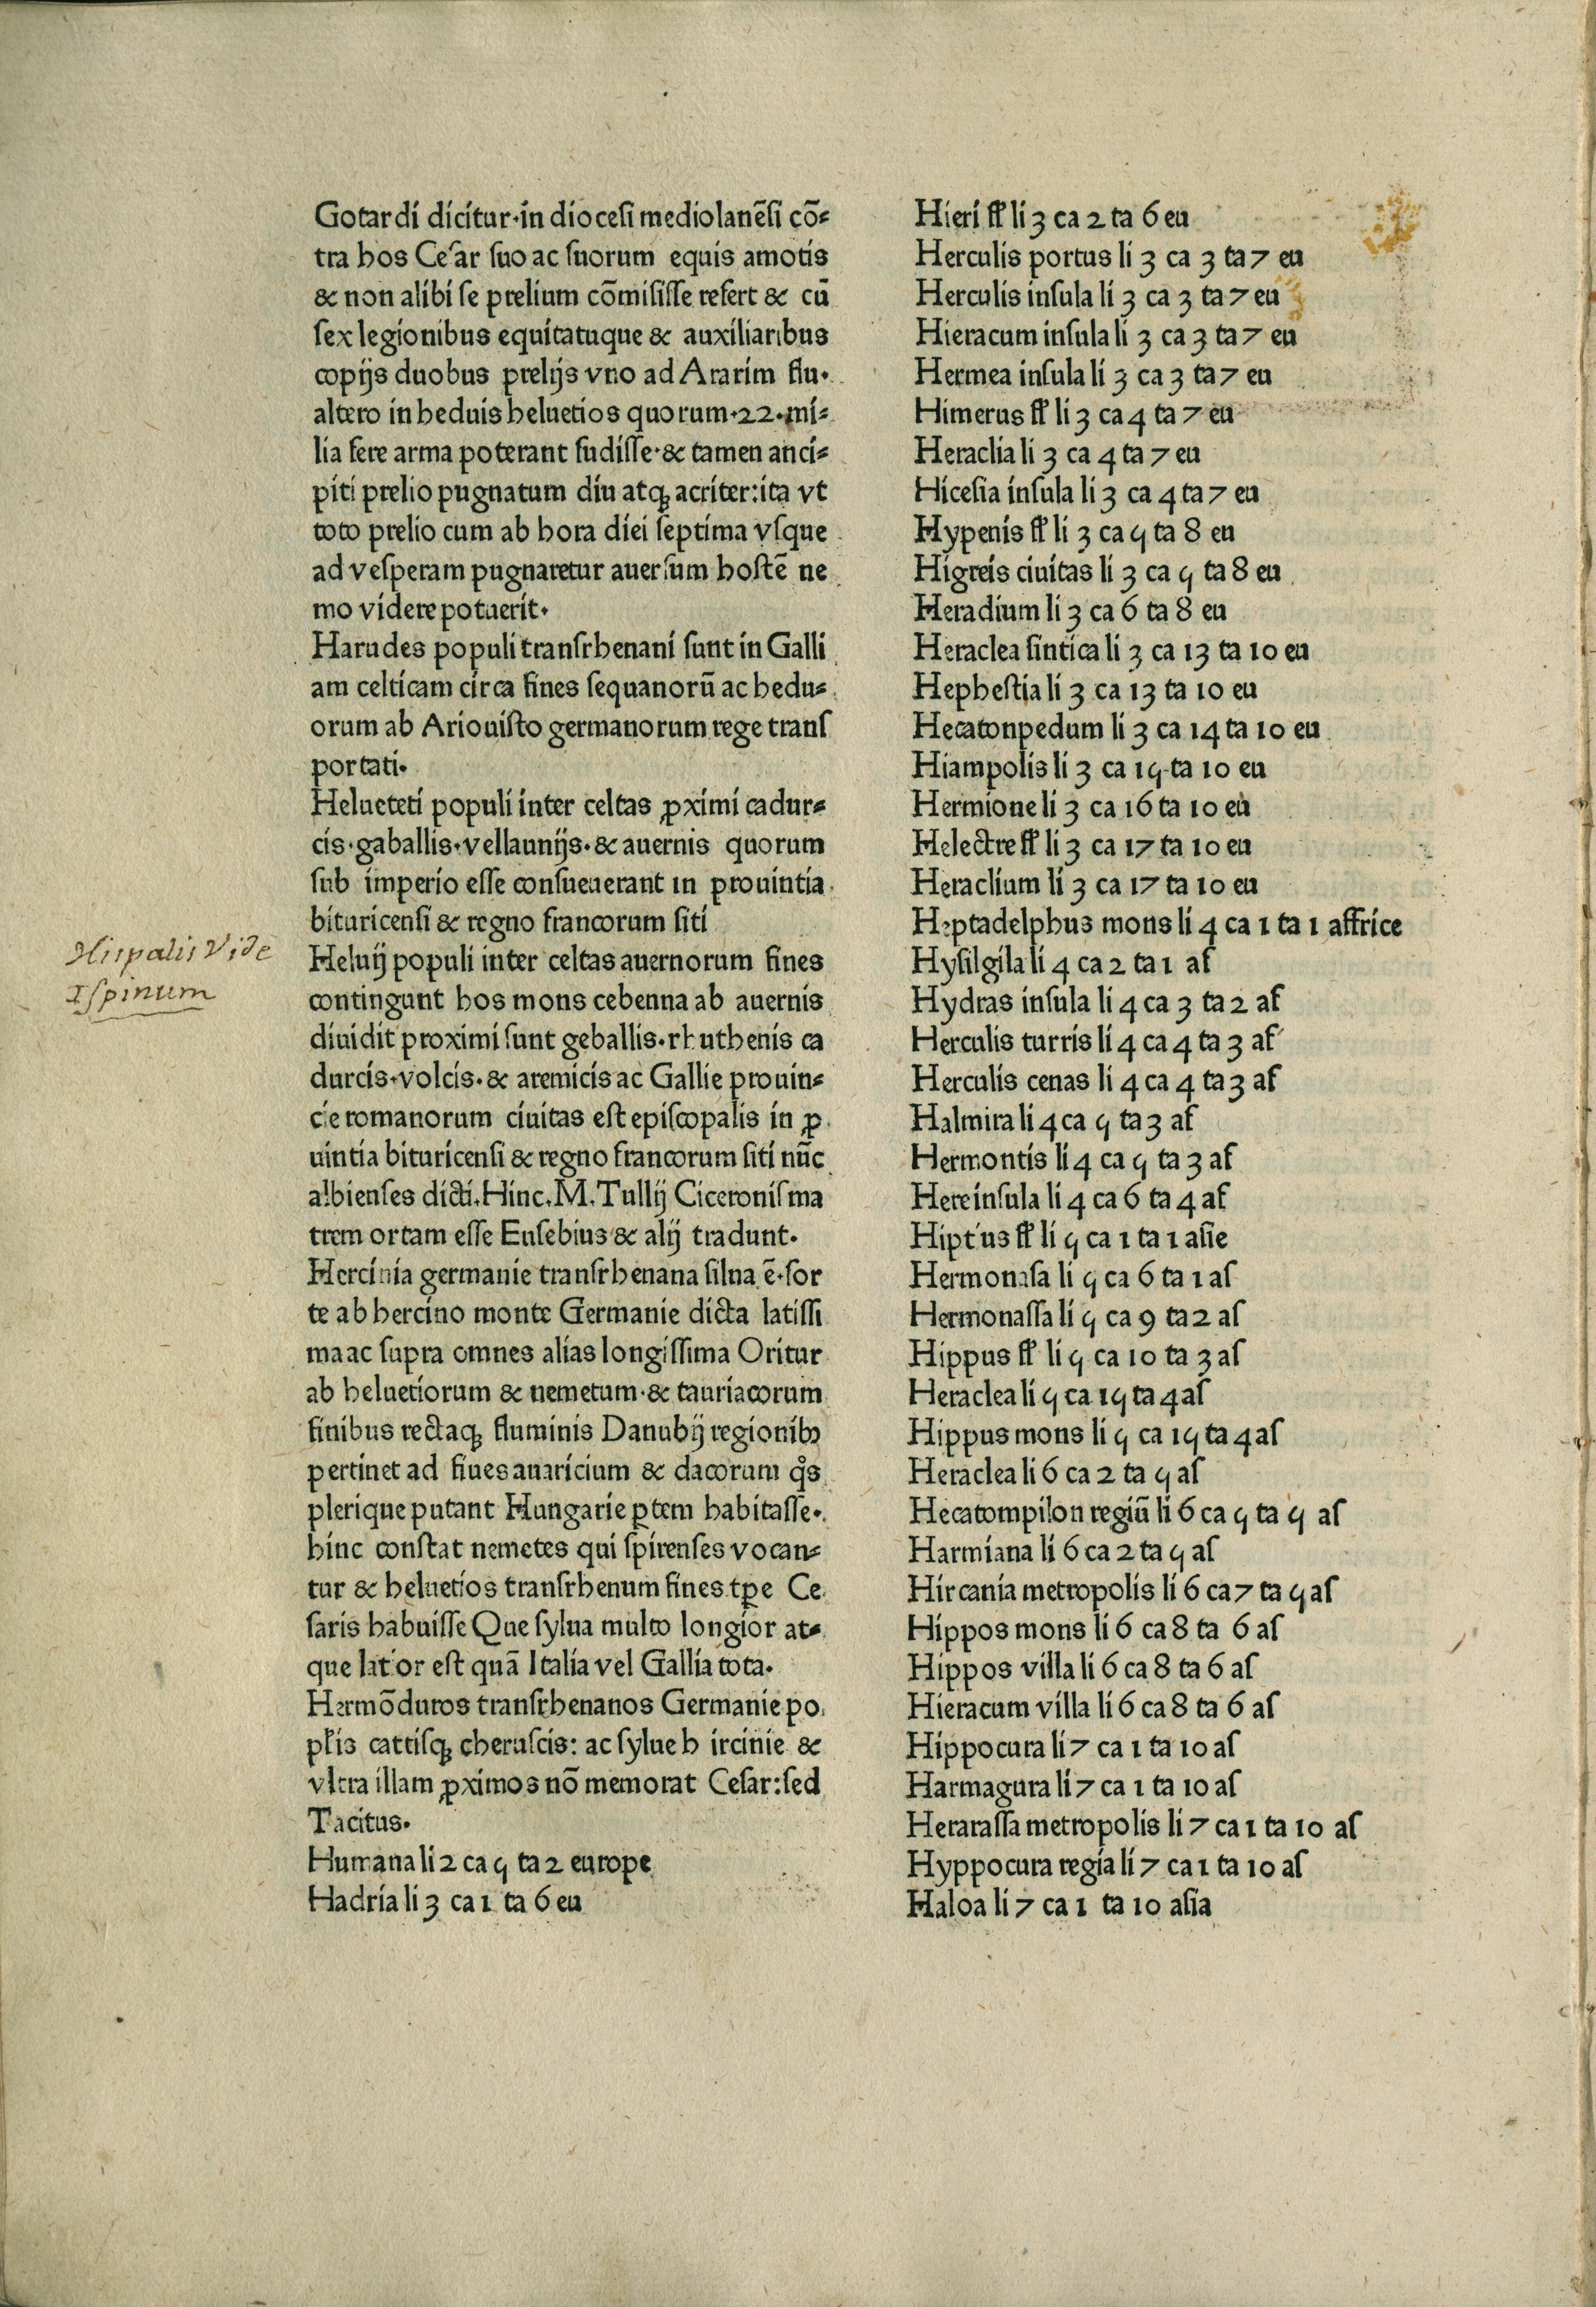 Gotardi dicitur·in diocesi mediolanēsi cō⸗
tra hos Cesar suo ac suorum equis amotis
& non alibi se prelium cōmisisse refert & cū
sex legionibus equitatuque & auxiliaribus
copijs duobus prelijs vno ad Ararim flu·
altero in heduis heluetios quorum·22·mi⸗
lia fere arma poterant fudisse·& tamen anci⸗
piti prelio pugnatum diu atqꝫ acriter:ita vt
toto prelio cum ab hora diei septima vsque
ad vesperam pugnaretur auersum hostē ne
mo videre potuerit·
Harudes populi transrhenani sunt in Galli
am celticam circa fines sequanorū ac hedu⸗
orum ab Ariouisto germanorum rege trans
portati·
Helueteti populi inter celtas ꝓximi cadur⸗
cis·gaballis·vellaunijs·& auernis quorum
sub imperio esse consueuerant in prouintia
bituricensi & regno francorum siti
Heluij populi inter celtas auernorum fines
contingunt hos mons cebenna ab auernis
diuidit proximi sunt geballis·rhuthenis ca
durcis·volcis·& aremicis ac Gallie prouin⸗
cie romanorum ciuitas est episcopalis in ꝓ
uintia bituricensi & regno francorum siti nūc
albienses dicti.Hinc.M.Tullij Ciceronis ma
trem ortam esse Eusebius & alij tradunt·
Hercinia germanie transrhenana silua ē·for
te ab hercino monte Germanie dicta latissi
ma ac supra omnes alias longissima Oritur
ab heluetiorum & nemetum·& tauriacorum
finibus rectaqꝫ fluminis Danubij regionibꝰ
pertinet ad fiues auaricium & dacorum q̊s
plerique putant Hungarie ꝑtem habitasse·
hinc constat nemetes qui spirenses vocan⸗
tur & heluetios transrhenum fines tꝑe Ce
saris habuisse Que sylua multo longior at⸗
que latior est quā Italia vel Gallia tota·
Hermōduros transrhenanos Germanie po
pl̄is cattisqꝫ cheruscis: ac sylue h ircinie &
vltra illam ꝓximos nō memorat Cesar:sed
Tacitus·
Humana li 2 ca 5 ta 2 europe
Hadria li 3 ca 1 ta 6 eu
Hispalis Vide
Ispinum
Hieri fl̄ li 3 ca 2 ta 6 eu
Herculis portus li 3 ca 3 ta 7 eu
Herculis insula li 3 ca 3 ta 7 eu
Hieracum insula li 3 ca 3 ta 7 eu
Hermea insula li 3 ca 3 ta 7 eu
Himerus fl̄ li 3 ca 4 ta 7 eu
Heraclia li 3 ca 4 ta 7 eu
Hicesia insula li 3 ca 4 ta 7 eu
Hypenis fl̄ li 3 ca 5 ta 8 eu
Higreis ciuitas li 3 ca 5 ta 8 eu
Heradium li 3 ca 6 ta 8 eu
Heraclea sintica li 3 ca 13 ta 10 eu
Hephestia li 3 ca 13 ta 10 eu
Hecatonpedum li 3 ca 14 ta 10 eu
Hiampolis li 3 ca 15 ta 10 eu
Hermione li 3 ca 16 ta 10 eu
Helectre fl̄ li 3 ca 17 ta 10 eu
Heraclium li 3 ca 17 ta 10 eu
Heptadelphus mons li 4 ca 1 ta 1 affrice
Hysilgila li 4 ca 2 ta 1 af
Hydras insula li 4 ca 3 ta 2 af
Herculis turris li 4 ca 4 ta 3 af
Herculis cenas li 4 ca 4 ta 3 af
Halmira li 4 ca 5 ta 3 af
Hermontis li 4 ca 5 ta 3 af
Here insula li 4 ca 6 ta 4 af
Hiptus fl̄ li 5 ca 1 ta 1 asie
Hermonasa li 5 ca 6 ta 1 as
Hermonassa li 5 ca 9 ta 2 as
Hippus fl̄ li 5 ca 10 ta 3 as
Heraclea li 5 ca 15 ta 4 as
Hippus mons li 5 ca 15 ta 4 as
Heraclea li 6 ca 2 ta 5 as
Hecatompilon regiū li 6 ca 5 ta 5 as
Harmiana li 6 ca 2 ta 5 as
Hircania metropolis li 6 ca 7 ta 5 as
Hippos mons li 6 ca 8 ta 6 as
Hippos villa li 6 ca 8 ta 6 as
Hieracum villa li 6 ca 8 ta 6 as
Hippocura li 7 ca 1 ta 10 as
Harmagura li 7 ca 1 ta 10 as
Herarassa metropolis li 7 ca 1 ta 10 as
Hyppocura regia li 7 ca 1 ta 10 as
Haloa li 7 ca 1 ta 10 asia